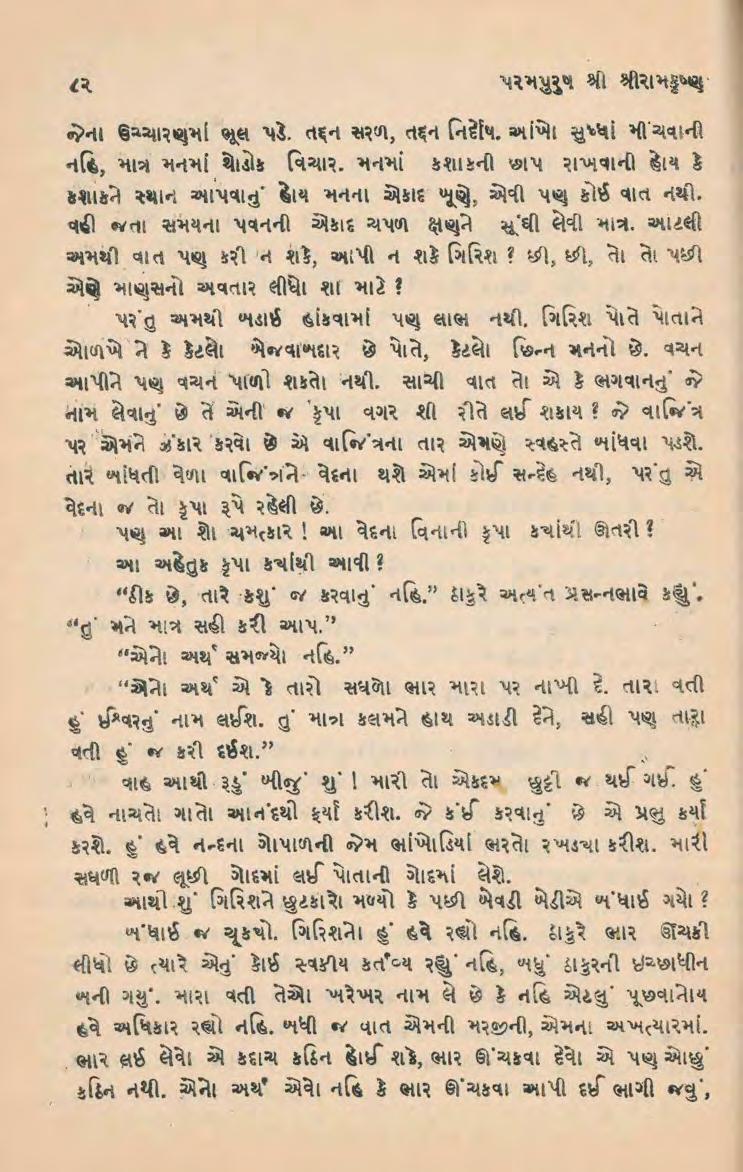 ૮૨ પરમપુરુષ શ્રી શ્રીરામકૃષ્ણ
જેના ઉચ્ચારણમાં ભૂલ પડે. તદ્દન સરળ, તદ્દન નિર્દોષ. આંખો સુધ્ધાં મીંચવાની
નહિ, માત્ર મનમાં થોડોક વિચાર. મનમાં કશાકની છાપ રાખવાની હોય કે
કશાકને સ્થાન આપવાનું હોય મનના એકાદ ખૂણે, એવી પણ કોઈ વાત નથી.
વહી જતા સમયના પવનની એકાદ ચપળ ક્ષણને સૂંઘી લેવી માત્ર. આટલી
અમથી વાત પણ કરી ન શકે, આપી ન શકે ગિરિશ ? છી, છી, તો તો પછી
એણે માણસનો અવતાર લીધો શા માટે ?
પરંતુ અમથી બડાઈ હાંકવામાં પણ લાભ નથી. ગિરિશ પોતે પોતાને
ઓળખે ને કે કેટલો બેજવાબદાર છે પોતે, કેટલો છિન્ન મનનો છે. વચન
આપીને પણ વચન પાળી શકતો નથી. સાચી વાત તો એ કે ભગવાનનું જે
નામ લેવાનું છે તે એની જ કૃપા વગર શી રીતે લઈ શકાય ? જે વાજિંત્ર
પર એમને ઝંકાર કરવો છે એ વાજિંત્રના તાર એમણે સ્વહસ્તે બાંધવા પડશે.
તાર બાંધતી વેળા વાજિંત્રને વેદના થશે એમાં કોઈ સન્દેહ નથી, પરંતુ એ
વેદના જ તો કૃપા રૂપે રહેલી છે.
પણ આ શો ચમત્કાર ! આ વેદના વિનાની કૃપા કયાંથી ઊતરી ?
આ અહેતુક કૃપા કયાંથી આવી ?
“ઠીક છે, તારે કશું જ કરવાનું નહિ.” ઠાકુરે અત્યંત પ્રસન્નભાવે કહ્યું.
“તું મને માત્ર સહી કરી આપ.”
“એનો અર્થ સમજ્યો નહિ.”
“એનો અર્થ એ કે તારો સઘળો ભાર મારા પર નાખી દે. તારા વતી
હું ઈશ્વરનું નામ લઈશ. તું માત્ર કલમને હાથ અડાડી દેને, સહી પણ તારા
વતી હું જ કરી દઈશ.”
વાહ આથી રૂડું બીજું શું ! મારી તો એકદમ છુટ્ટી જ થઈ ગઈ. હું
હવે નાચતો ગાતો આનંદથી ફર્યા કરીશ. જે કંઈ કરવાનું છે એ પ્રભુ કર્યા
કરશે. હું હવે નન્દના ગોપાળની જેમ ભાંખોડિયાં ભરતો રખડ્યા કરીશ. મારી
સઘળી રજ લૂછી ગોદમાં લઈ પોતાની ગોદમાં લેશે.
આથી શું ગિરિશને છુટકારો મળ્યો કે પછી બેવડી બેડીએ બંધાઈ ગયો ?
બંધાઈ જ ચૂક્યો. ગિરિશનો હું હવે રહ્યો નહિ. ઠાકુરે ભાર ઊંચકી
લીધો છે ત્યારે એનું કોઈ સ્વકીય કર્તવ્ય રહ્યું નહિ, બધું ઠાકુરની ઇચ્છાધીન
બની ગયું. મારા વતી તેઓ ખરેખર નામ લે છે કે નહિ એટલું પૂછવાનોય
હવે અધિકાર રહ્યો નહિ. બધી જ વાત એમની મરજીની, એમના અખત્યારમાં.
ભાર લઈ લેવો એ કદાચ કઠિન હોઈ શકે, ભાર ઊંચકવા દેવો એ પણ ઓછું
કઠિન નથી. એનો અર્થ એવો નહિ કે ભાર ઊંચકવા આપી દઈ ભાગી જવું,